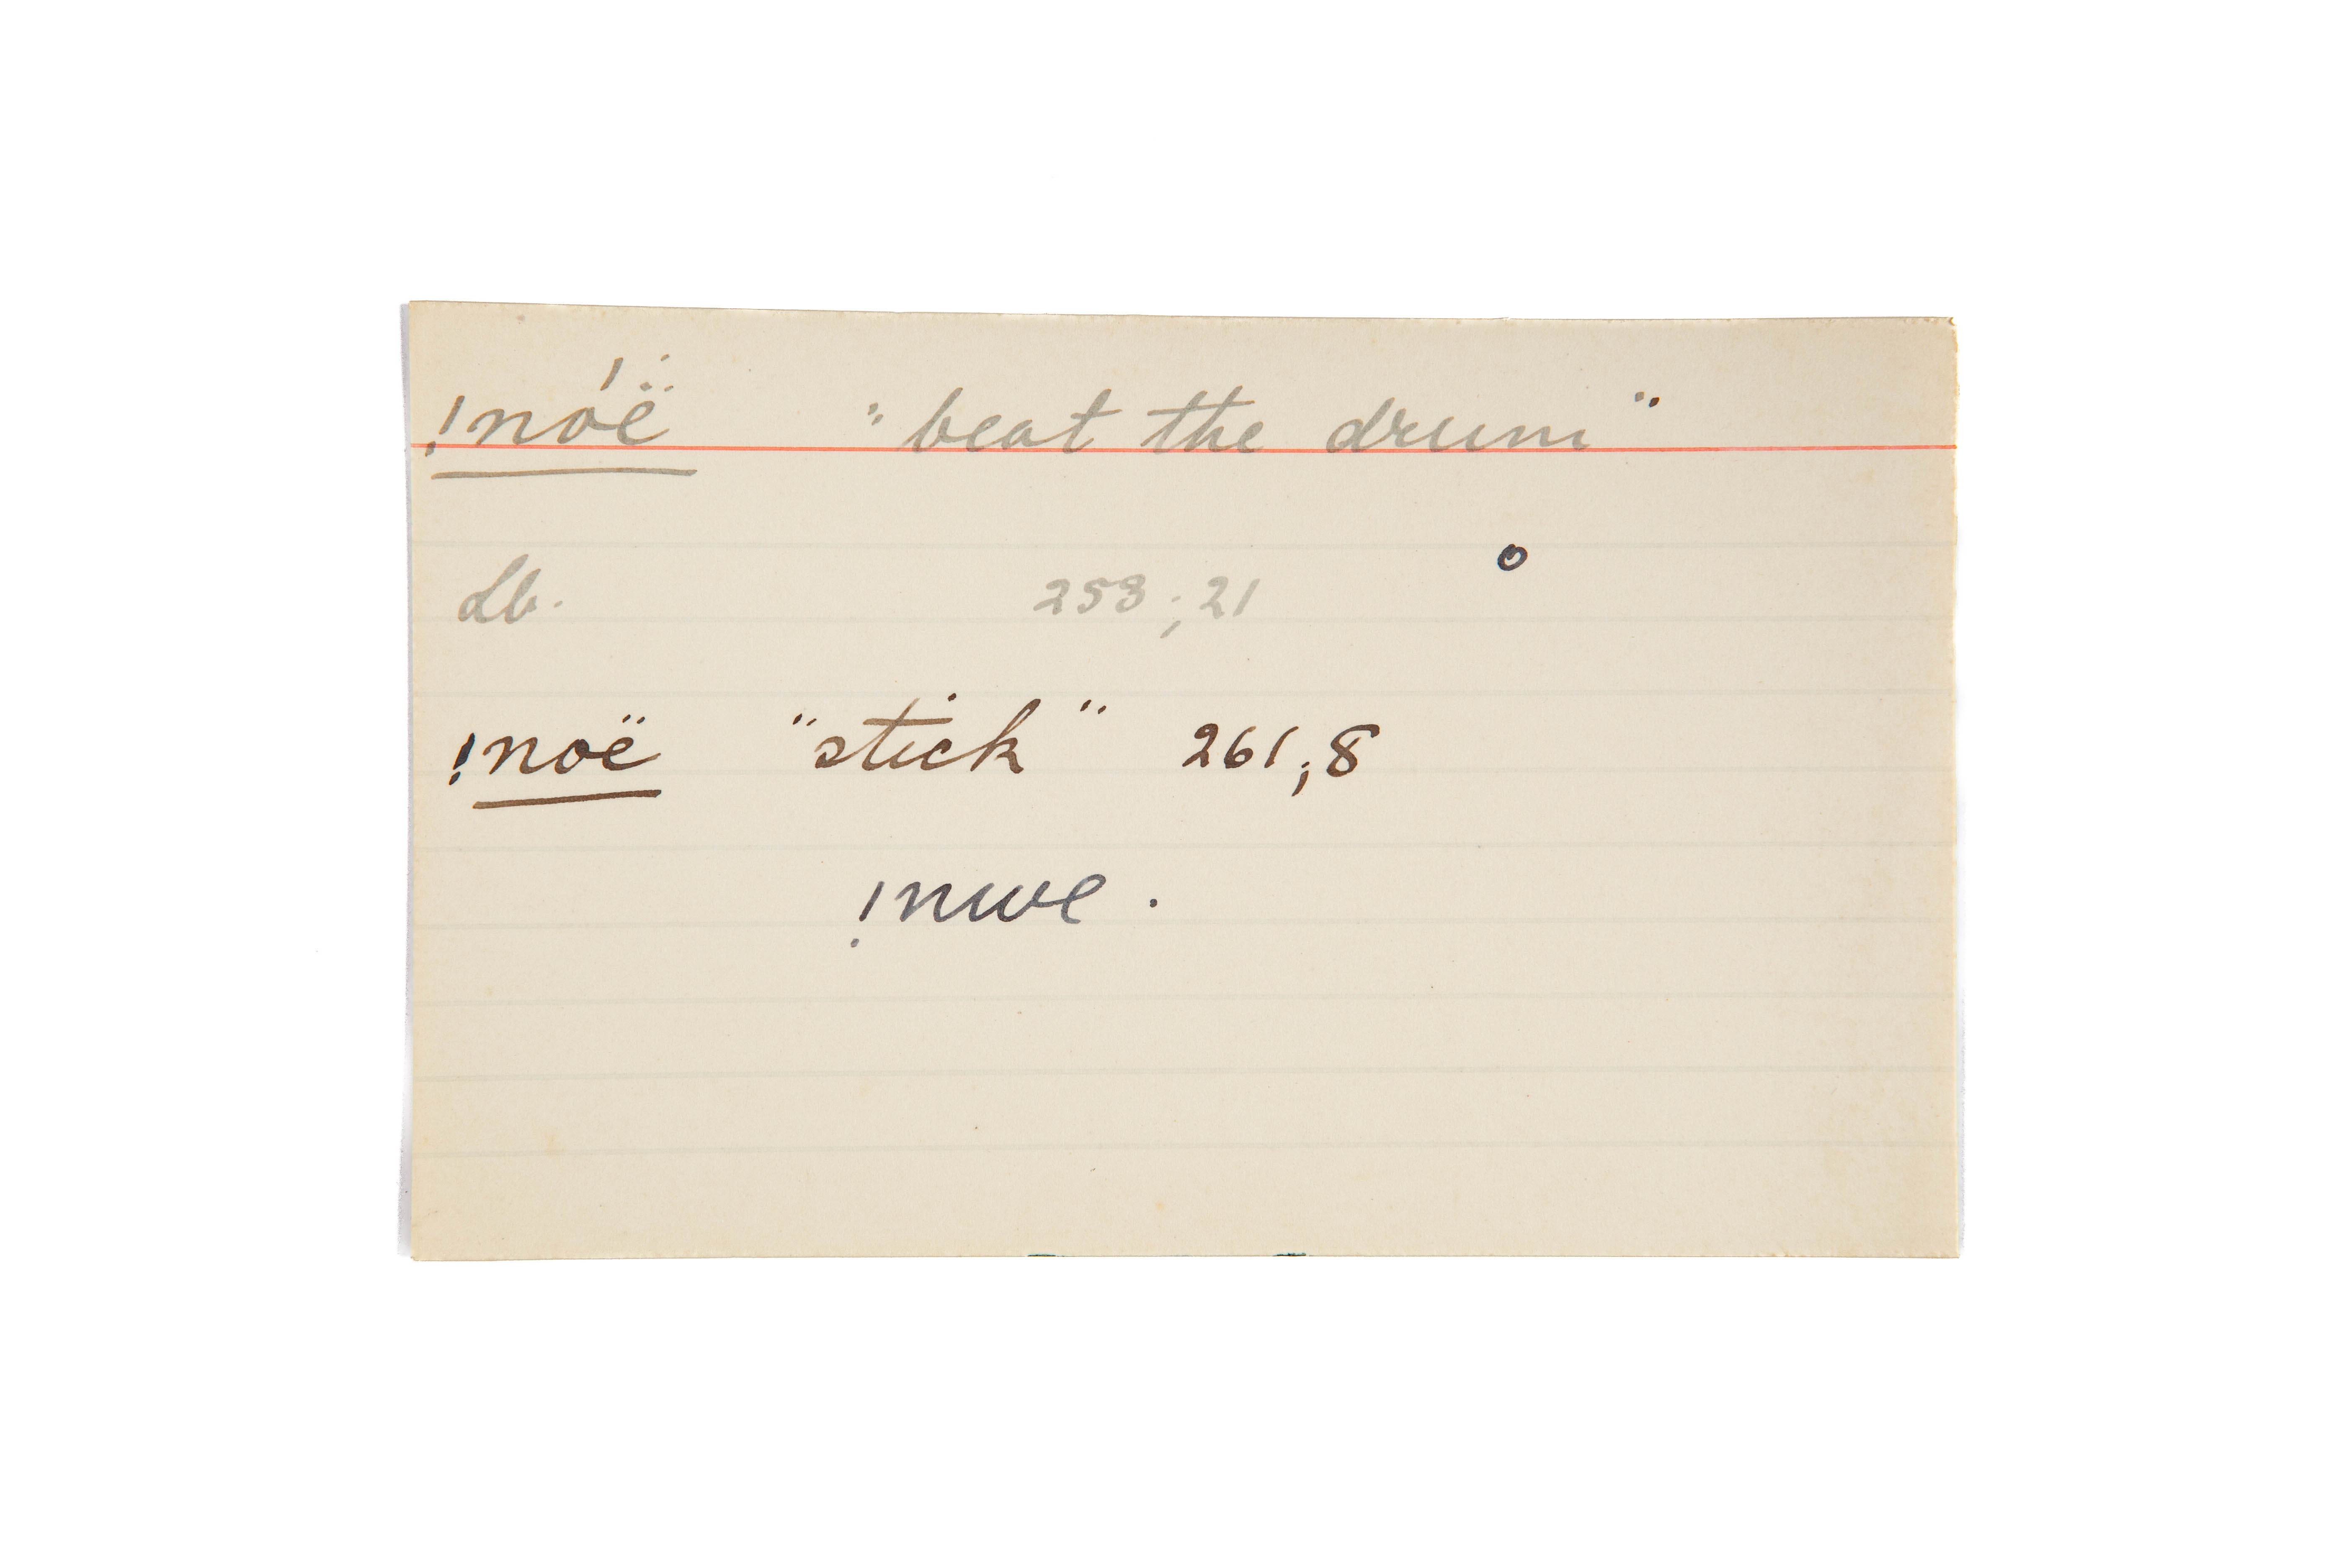 !nóë "beat the drum"
o
Lb. 253;21
!noë "stick" 261;8
!nwe.